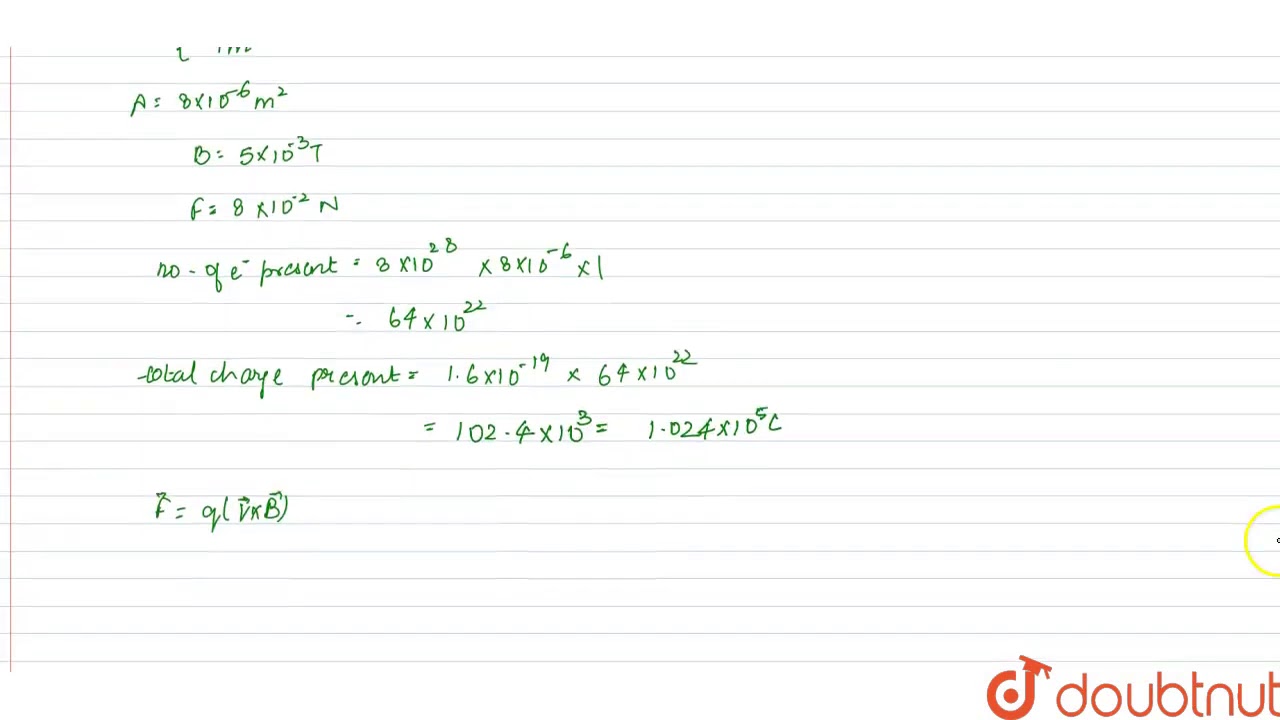 A = 8×10⁻⁶ m²
B = 5×10⁻³ T
F = 8×10⁻² N
no - of e⁻ present = 8×10²⁸ × 8×10⁻⁶ × 1
= 64×10²²
total charge present = 1.6×10⁻¹⁹ × 64×10²²
= 102.4×10³ = 1.024×10⁵ C
F⃗ = q(V⃗×B⃗)
doubtnut